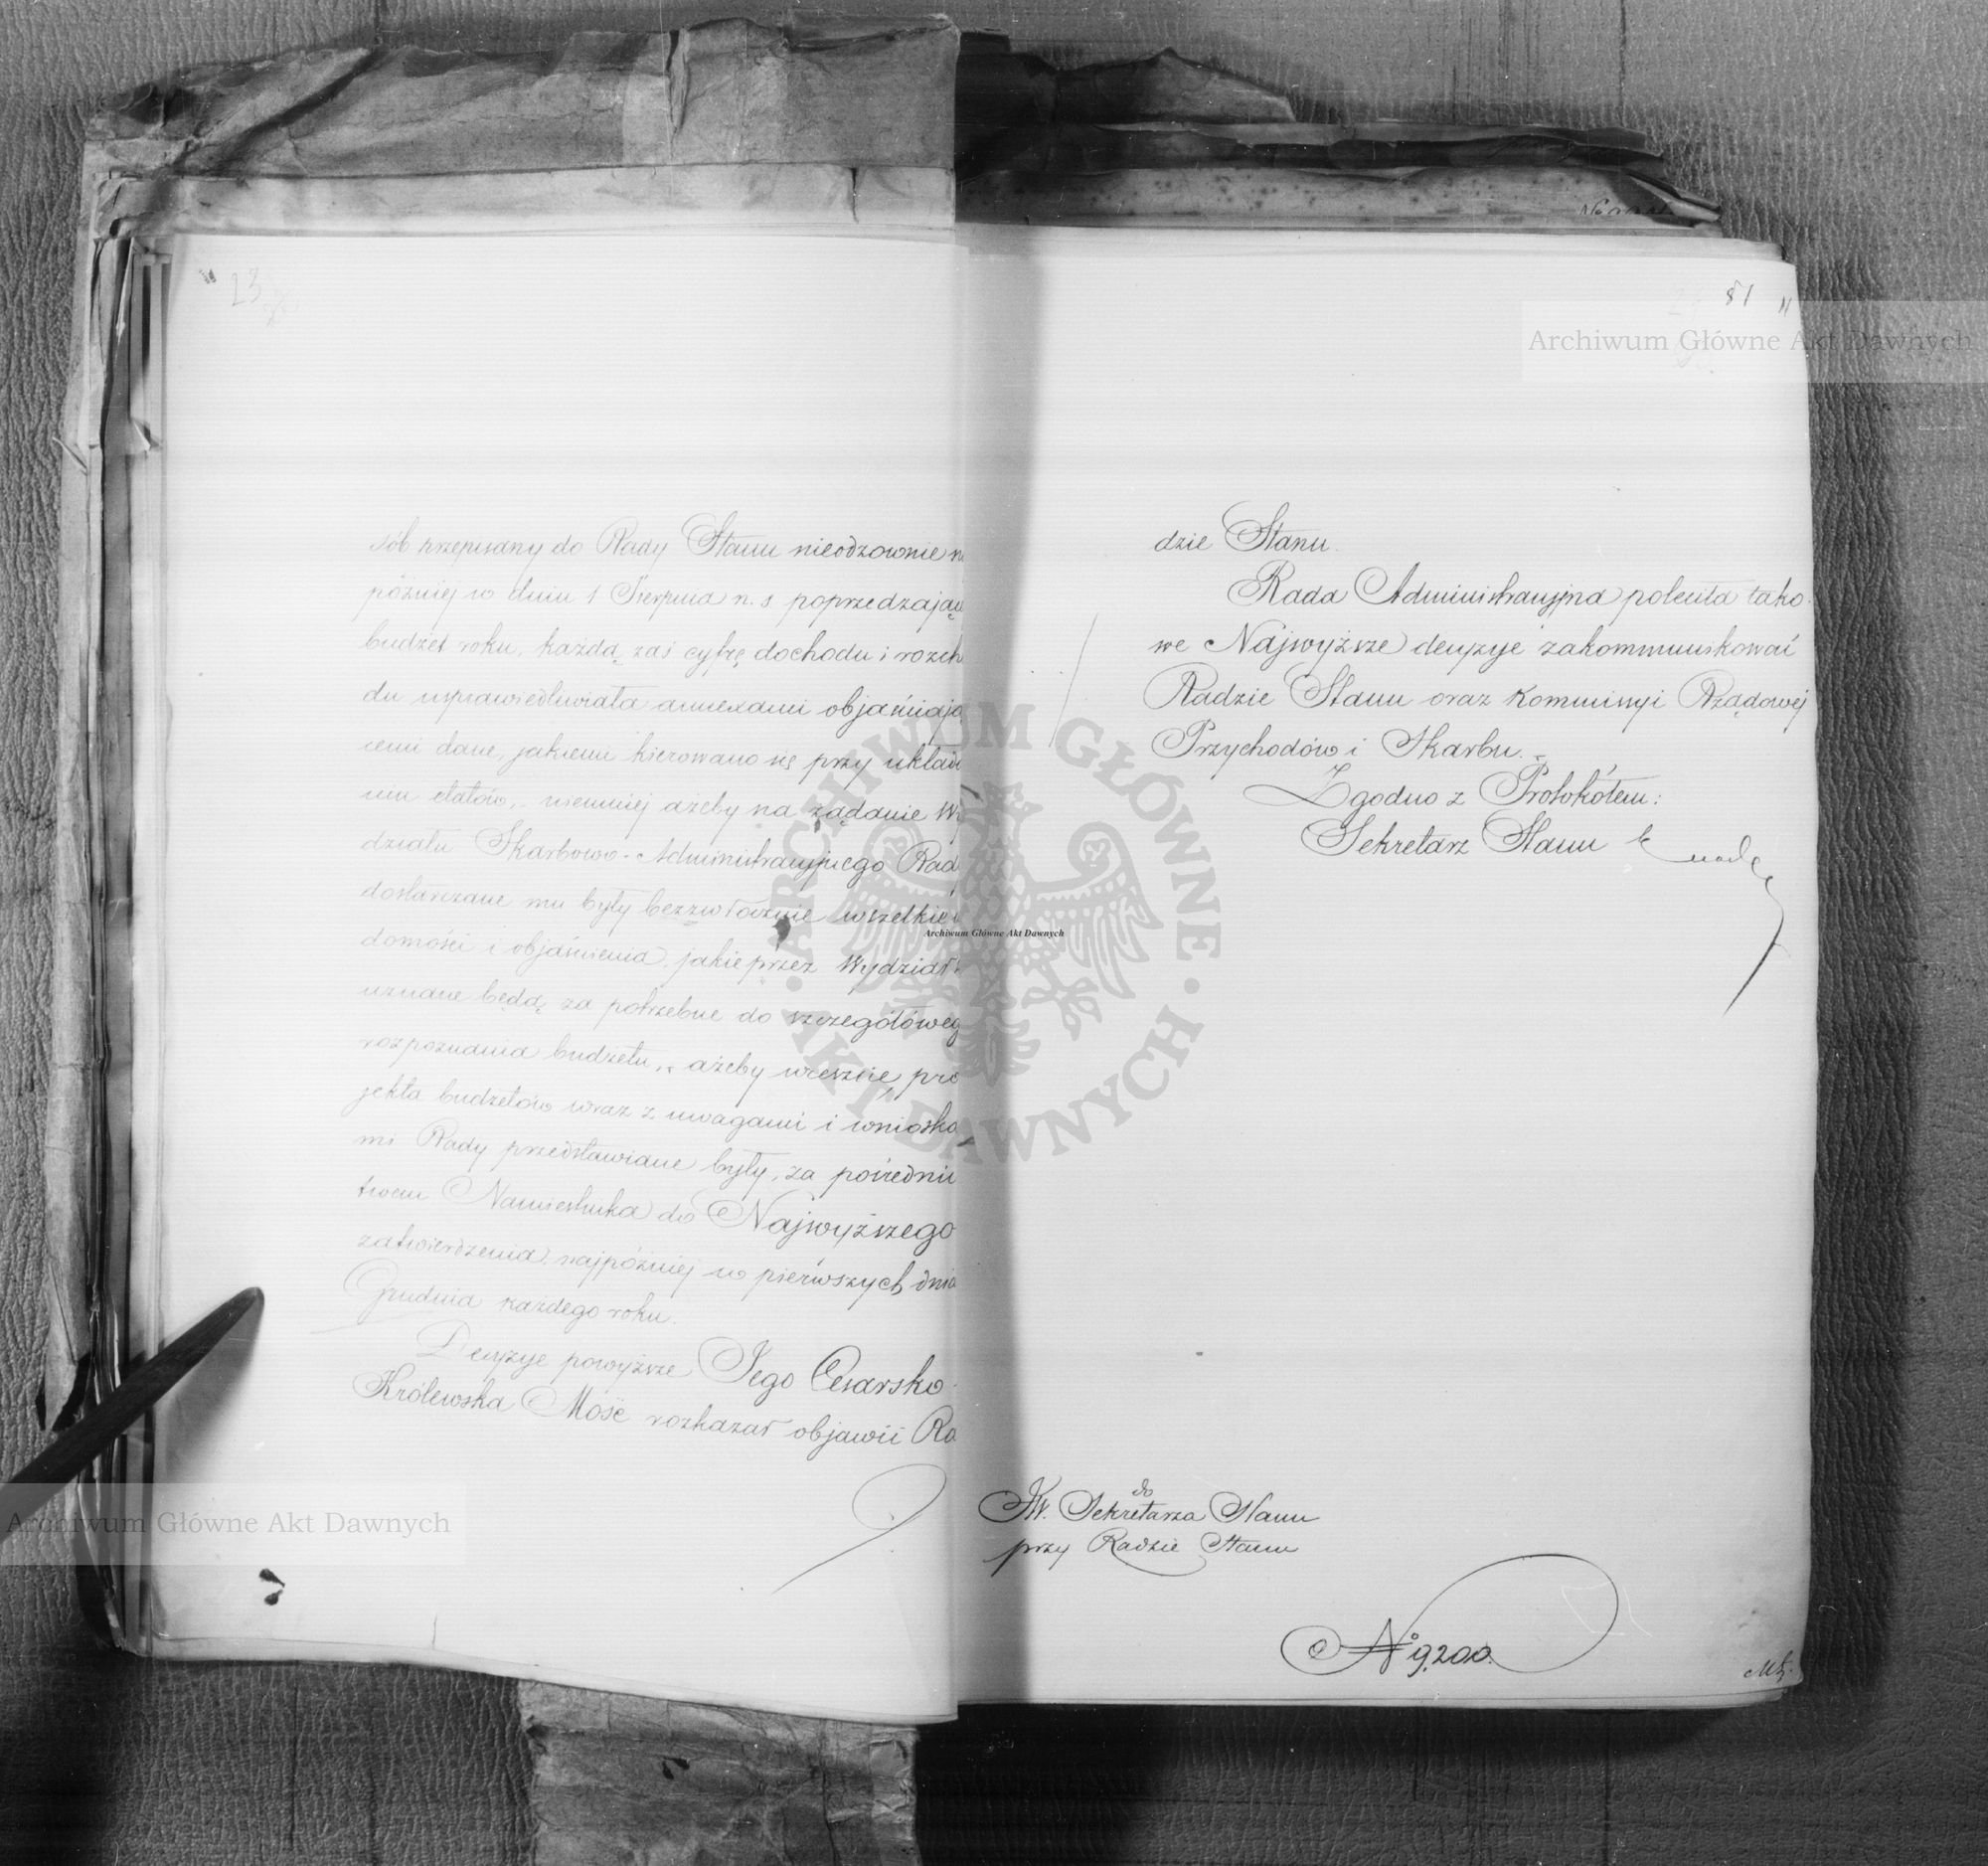 23
sób przepisany do Rady Stanu nieodzownie n
później w dniu 1 Sierpnia n. s poprzedzając
budżet roku, każdą zaś cyfrę dochodu i rozch
du usprawiedliwiała annexami objaśniają
cemi dane, jakiemi kierowano się przy układ
niu etatów,- niemniej ażeby na żądanie Wy
działu Skarbowo-Administracyjnego Rad
dostarczane mu były bezzwłocznie wszelkie
domości i objaśnienia, jakie przez Wydział
uznane będą za potrzebne do szczegółoweg
rozpoznania budżetu,- ażeby wreszcie pro
jekta budżetów wraz z uwagami i wniosko
mi Rady przedstawiane były, za pośrednic
twem Namiestnika do Najwyższego
zatwierdzenia, najpóźniej w pierwszych dnia
Grudnia każdego roku.
Decyzye powyższe Jego Cesarsko-
Królewska Mość rozkazał objawić Ra
81
dzie Stanu.
Rada Administracyjna poleciła tako-
we Najwyższe decyzye zakommunikować
Radzie Stanu oraz Kommissyi Rządowej
Przychodów i Skarbu.-
Zgodno z Protokółem:
Sekretarz Stanu
do
JW. Sekretarza Stanu
przy Radzie Stanu
№ 9,200.
Archiwum Główne Akt Dawnych
Archiwum Główne Akt Dawnych
Archiwum Główne Akt Dawnych
ARCHIWUM GŁÓWNE · AKT DAWNYCH ·